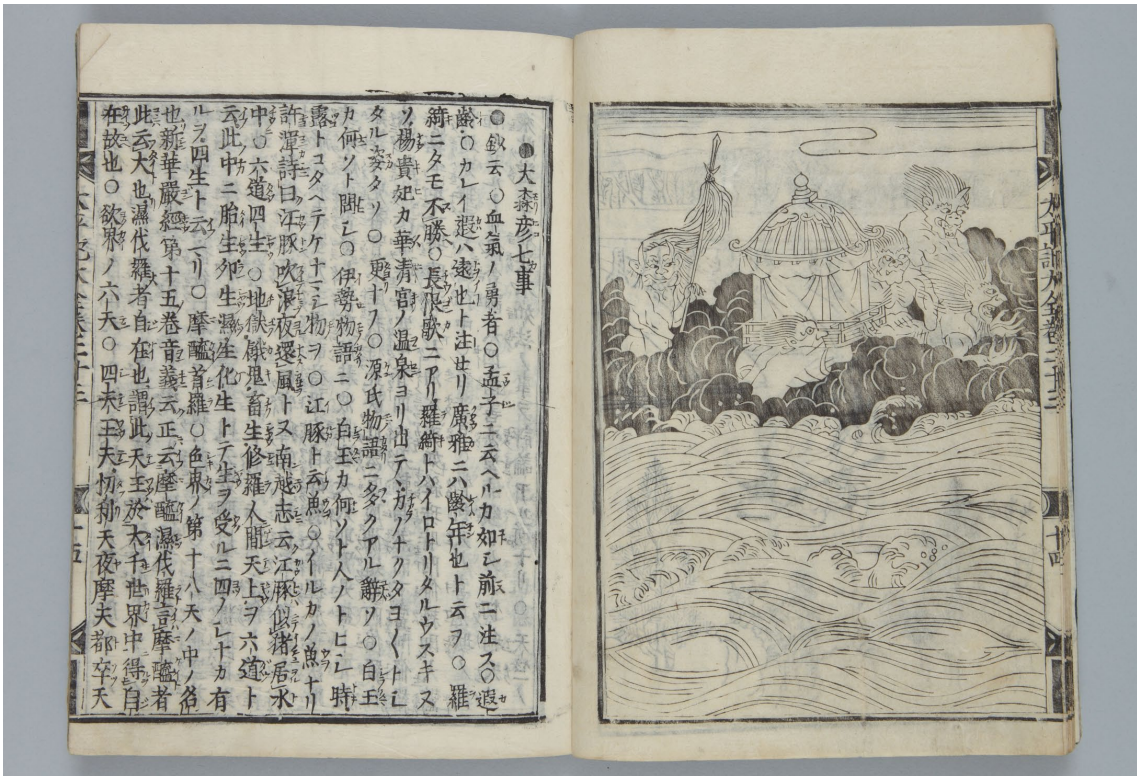 太平記大全卷二十三
十四
●大森彦七事
●鈔云○血氣ノ勇者○孟子ニ云ヘルカ如シ前ニ注ス○遐
齡○カレイ遐ハ遠也ト注せリ廣雅ニハ齡年也ト云フ○羅
綺ニタモ不勝○長恨歌ニアリ羅綺トハイロトリタルウスキヌ
ソ楊貴妃カ華清宮ノ温泉ヨリ出テ方ノナクタヨ〱トシ
タル姿タソ○更ナフ○源氏物語ニ多クアル辭ソ○白玉
カ何ソト問シ○伊勢物語ニ○白玉カ何ソト人ノトヒシ時
露トコタヘテケナマシ物ヲ○江豚ト云魚○イルカノ魚ナリ
許渾詩曰江豚吹浪夜還風トス南越志云江豚似猪居水
中○六道四生○地獄餓鬼畜生修羅人間天上ヲ六道ト
云此中ニ胎生卵生濕生化生トテ生ヲ受ルニ四ノシナカ有
ルヲ四生ト云ナリ○摩醯首羅○色界ノ第十八天ノ中ノ名
也新華嚴經第十五卷音義云正云摩醯濕伐羅言摩醯者
此云大也濕伐羅者自在也謂此天王於大千世界中得自
在故也○欲界ノ六天○四天王天忉利天夜摩天都卒天
十五